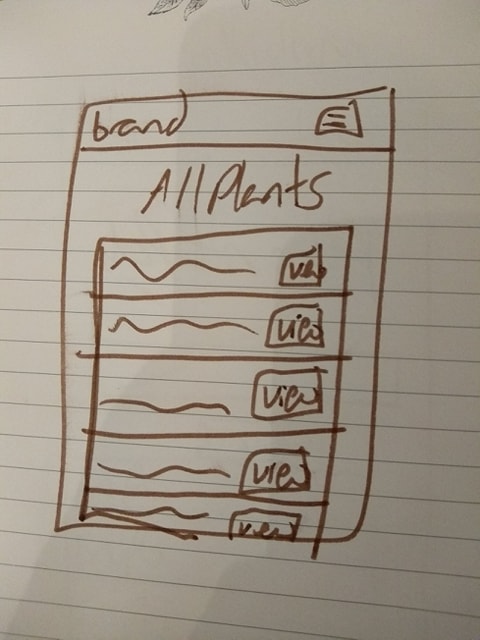 brand
All Plants
view
view
view
view
view